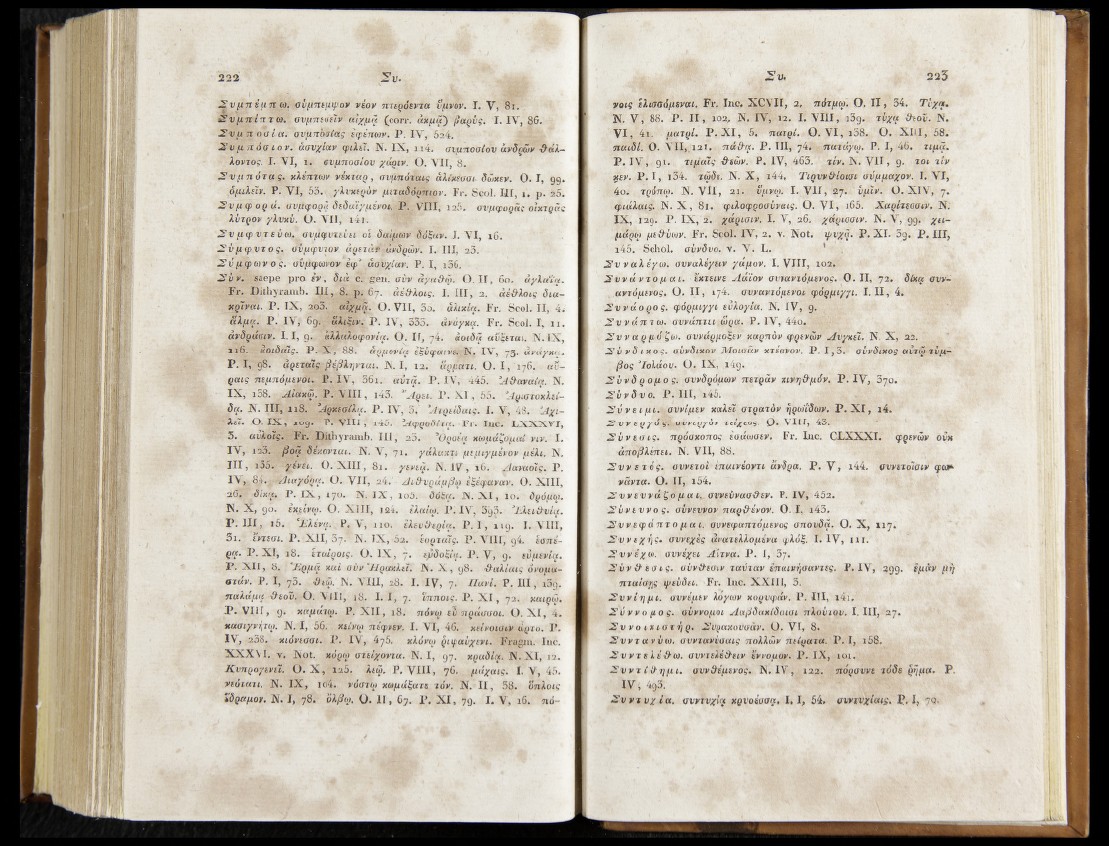 222 Συ.
Συμπέμπω. σύμπεμψον νέον πτερόεντα ὕμνον. I. V, 81.
Συμπίπτω. συμπεσεῖν αἰχμᾷ (corr. ἀκμᾷ) βαρύς. I. IV, 86.
Συμποσία. συμποσίας ἐφέπων. P. IV, 524.
Συμπόσιον. ἀσυχίαν φιλεῖ. N. IX, 114. συμποσίου ἀνδρῶν θάλ-
λοντος. I. VI, 1. συμποσίου χάριν. O. VII, 8.
Συμπότας. κλέπτων νέκταρ, συμπόταις ἁλίκεσσι δῶκεν. O. I, 99.
ὁμιλεῖν. P. VI, 53. γλυκερὸν μεταδόρπιον. Fr. Scol. III, 1. p. 25.
Συμφορά. συμφορᾷ δεδαϊγμένοι. P. VIII, 125. συμφορᾶς οἰκτρᾶς
λύτρον γλυκύ. O. VII, 141.
Συμφυτεύω. συμφυτεύει οἱ δαίμων δόξαν. I. VI, 16.
Σύμφυτος. σύμφυτον ἀρετὰν ἀνδρῶν. I. III, 23.
Σύμφωνος. σύμφωνον ἐφ' ἀσυχίαν. P. I, 136.
Σύν. saepe pro ἐν, διὰ c. gen. σὺν ἀγαθῷ. O. II, 60. ἀγλαΐᾳ.
Fr. Dithyramb. III, 8. p. 67. ἀέθλοις. I. III, 2. ἀέθλοις δια-
κρῖναι. P. IX, 203. αἰχμᾷ. O. VII, 35. ἁλικίᾳ. Fr. Scol. II, 4.
ἅλμᾳ. P. IV, 69. ἄλιξιν. P. IV, 333. ἀνάγκᾳ. Fr. Scol. I, 11.
ἀνδράσιν. I. I, 9. ἀλλαλοφονίᾳ. O. II, 74. ἀοιδᾷ αὔξεται. N. IX,
116. ἀοιδαῖς. P. X, 88. ἁρμονίᾳ ἐξύφαινε. N. IV, 73. ἀνάγκᾳ.
P. I, 98. ἀρεταῖς βέβληνται. N. I, 12. ἅρματι. O. I, 176. αὔ-
ραις πεμπόμενοι. P. IV, 361. αὐτᾷ. P. IV, 445. Ἀθαναίᾳ. N.
IX, 138. Αἰακῷ. P. VIII, 143. Ἄρει. P. XI, 55. Ἀριστοκλεί-
δᾳ. N. III, 118. Ἀρκεσίλᾳ. P. IV, 3. Ἀτρείδαις. I. V, 48. Ἀχι-
λεῖ. O. IX, 109. P. VIII, 145. Ἀφροδίτᾳ. Fr. Inc. LXXXVI,
3. αὐλοῖς. Fr. Dithyramb. III, 23. Ὀρσέᾳ κωμάζομαί νιν. I.
IV, 123. βοᾷ δέκονται. N. V, 71. γάλακτι μεμιγμένον μέλι. N.
III, 135. γένει. O. XIII, 81. γενεᾷ. N. IV, 16. Δαναοῖς. P.
IV, 84. Διαγόρᾳ. O. VII, 24. Διθυράμβῳ ἐξέφαναν. O. XIII,
26. δίκᾳ. P. IX, 170. N. IX, 103. δόξᾳ. N. XI, 10. δρόμῳ.
N. X, 90. ἐκείνῳ. O. XIII, 124. ἐλαίῳ. P. IV, 393. Ἐλειθυίᾳ.
P. III, 15. Ἑλένᾳ. P. V, 110. ἐλευθερίᾳ. P. I, 119. I. VIII,
31. ἔντεσι. P. XII, 37. N. IX, 52. ἑορταῖς. P. VIII, 94. ἑσπέ-
ρᾳ. P. XI, 18. ἑταίροις. O. IX, 7. εὐδοξίᾳ. P. V, 9. εὐμενίᾳ.
P. XII, 8. Ἑρμᾷ καὶ σὺν Ἡρακλεῖ. N. X, 98. θαλίαις ὀνομα-
στάν. P. I, 73. θεῷ. N. VIII, 28. I. IV, 7. Πανί. P. III, 139.
παλάμᾳ θεοῦ. O. VIII, 18. I. I, 7. ἵπποις. P. XI, 72. καιρῷ.
P. VIII, 9. καμάτῳ. P. XII, 18. πόνῳ εὖ πράσσοι. O. XI, 4.
κασιγνήτῳ. N. I, 56. κείνῳ πέφνεν. I. VI, 46. κείνοισιν ἆρτο. P.
IV, 238. κιόνεσσι. P. IV, 475. κλόνῳ ῥιψαύχενι. Fragm. Inc.
XXXVI. v. Not. κόρῳ στείχοντα. N. I, 97. κραδίᾳ. N. XI, 12.
Κυπρογενεῖ. O. X, 125. λεῷ. P. VIII, 76. μάχαις. I. V, 45.
νεότατι. N. IX, 104. νόστῳ κωμάξατε τόν. N. II, 38. ὅπλοις
ἔδραμον. N. I, 78. ὄλβῳ. O. II, 67. P. XI, 79. I. V, 16. πό-
Συ. 223
νοις ἑλισσόμεναι. Fr. Inc. XCVII, 2. πότμῳ. O. II, 34. Τύχᾳ.
N. V, 88. P. II, 102. N. IV, 12. I. VIII, 139. τύχᾳ θεοῦ. N.
VI, 41. ματρί. P. XI, 5. πατρί. O. VI, 138. O. XIII, 58.
παιδί. O. VII, 121. πάθᾳ. P. III, 74. πατάγῳ. P. I, 46. τιμᾷ.
P. IV, 91. τιμαῖς θεῶν. P. IV, 463. τίν. N. VII, 9. τοι τίν
κεν. P. I, 134. τῷδε. N. X, 144. Τιρυνθίοισι σύμμαχον. I. VI,
40. τρόπῳ. N. VII, 21. ὕμνῳ. I. VII, 27. ὑμῖν. O. XIV, 7.
φιάλαις. N. X, 81. φιλοφροσύναις. O. VI, 165. Χαρίτεσσιν. N.
IX, 129. P. IX, 2. χάρισιν. I. V, 26. χάρισσιν. N. V, 99. χει-
μάρῳ μεθύων. Fr. Scol. IV, 2. v. Not. ψυχᾷ. P. XI. 39. P. III,
145. Schol. σύνδυο. v. V. L.
Συναλέγω. συναλέγειν γάμον. I. VIII, 102.
Συνάντομαι. ἔκτεινε Λάϊον συναντόμενος. O. II, 72. δίκᾳ συν-
αντόμενος. O. II, 174. συναντόμενοι φόρμιγγι. I. II, 4.
Συνάορος. φόρμιγγι εὐλογία. N. IV, 9.
Συνάπτω. συνάπτει ὥρα. P. IV, 440.
Συναρμόζω. συνάρμοξεν καρπὸν φρενῶν Λυγκεῖ. N. X, 22.
Σύνδικος. σύνδικον Μοισᾶν κτέανον. P. I, 3. σύνδικος αὐτῷ τύμ-
βος Ἰολάου. O. IX, 149.
Σύνδρομος. συνδρόμων πετρᾶν κινηθμόν. P. IV, 370.
Σύνδυο. P. III, 145.
Σύνειμι. συνίμεν καλεῖ στρατὸν ἡρωΐδων. P. XI, 14.
Συνεργός. συνεργὸν τείχεος. O. VIII, 43.
Σύνεσις. πρόσκοπος ἐσάωσεν. Fr. Inc. CLXXXI. φρενῶν οὐκ
ἀποβλέπει. N. VII, 88.
Συνετός. συνετοὶ ἐπαινέοντι ἄνδρα. P. V, 144. συνετοῖσιν φω-
νᾶντα. O. II, 154.
Συνευνάζομαι. συνεύνασθεν. P. IV, 452.
Σύνευνος. σύνευνον παρθένον. O. I, 143.
Συνεφάπτομαι. συνεφαπτόμενος σπουδᾷ. O. X, 117.
Συνεχής. συνεχὲς ἀνατελλομένα φλόξ. I. IV, 111.
Συνέχω. συνέχει Αἴτνα. P. I, 37.
Σύνθεσις. σύνθεσιν ταύταν ἐπαινήσαντες. P. IV, 299. ἐμὰν μὴ
πταίσῃς ψεύδει. Fr. Inc. XXIII, 3.
Συνίημι. συνέμεν λόγων κορυφάν. P. III, 141.
Σύννομος. σύννομοι Λαβδακίδαισι πλούτου. I. III, 27.
Συνοικιστήρ. Συρακουσᾶν. O. VI, 8.
Συντανύω. συντανύσαις πολλῶν πείρατα. P. I, 158.
Συντελέθω. συντελέθειν ἔννομον. P. IX, 101.
Συντίθημι. συνθέμενος. N. IV, 122. πόρσυνε τόδε ῥῆμα. P.
IV, 493.
Συντυχία. συντυχίᾳ κρυοέσσᾳ. I. I, 54. συντυχίαις. P. I, 70.